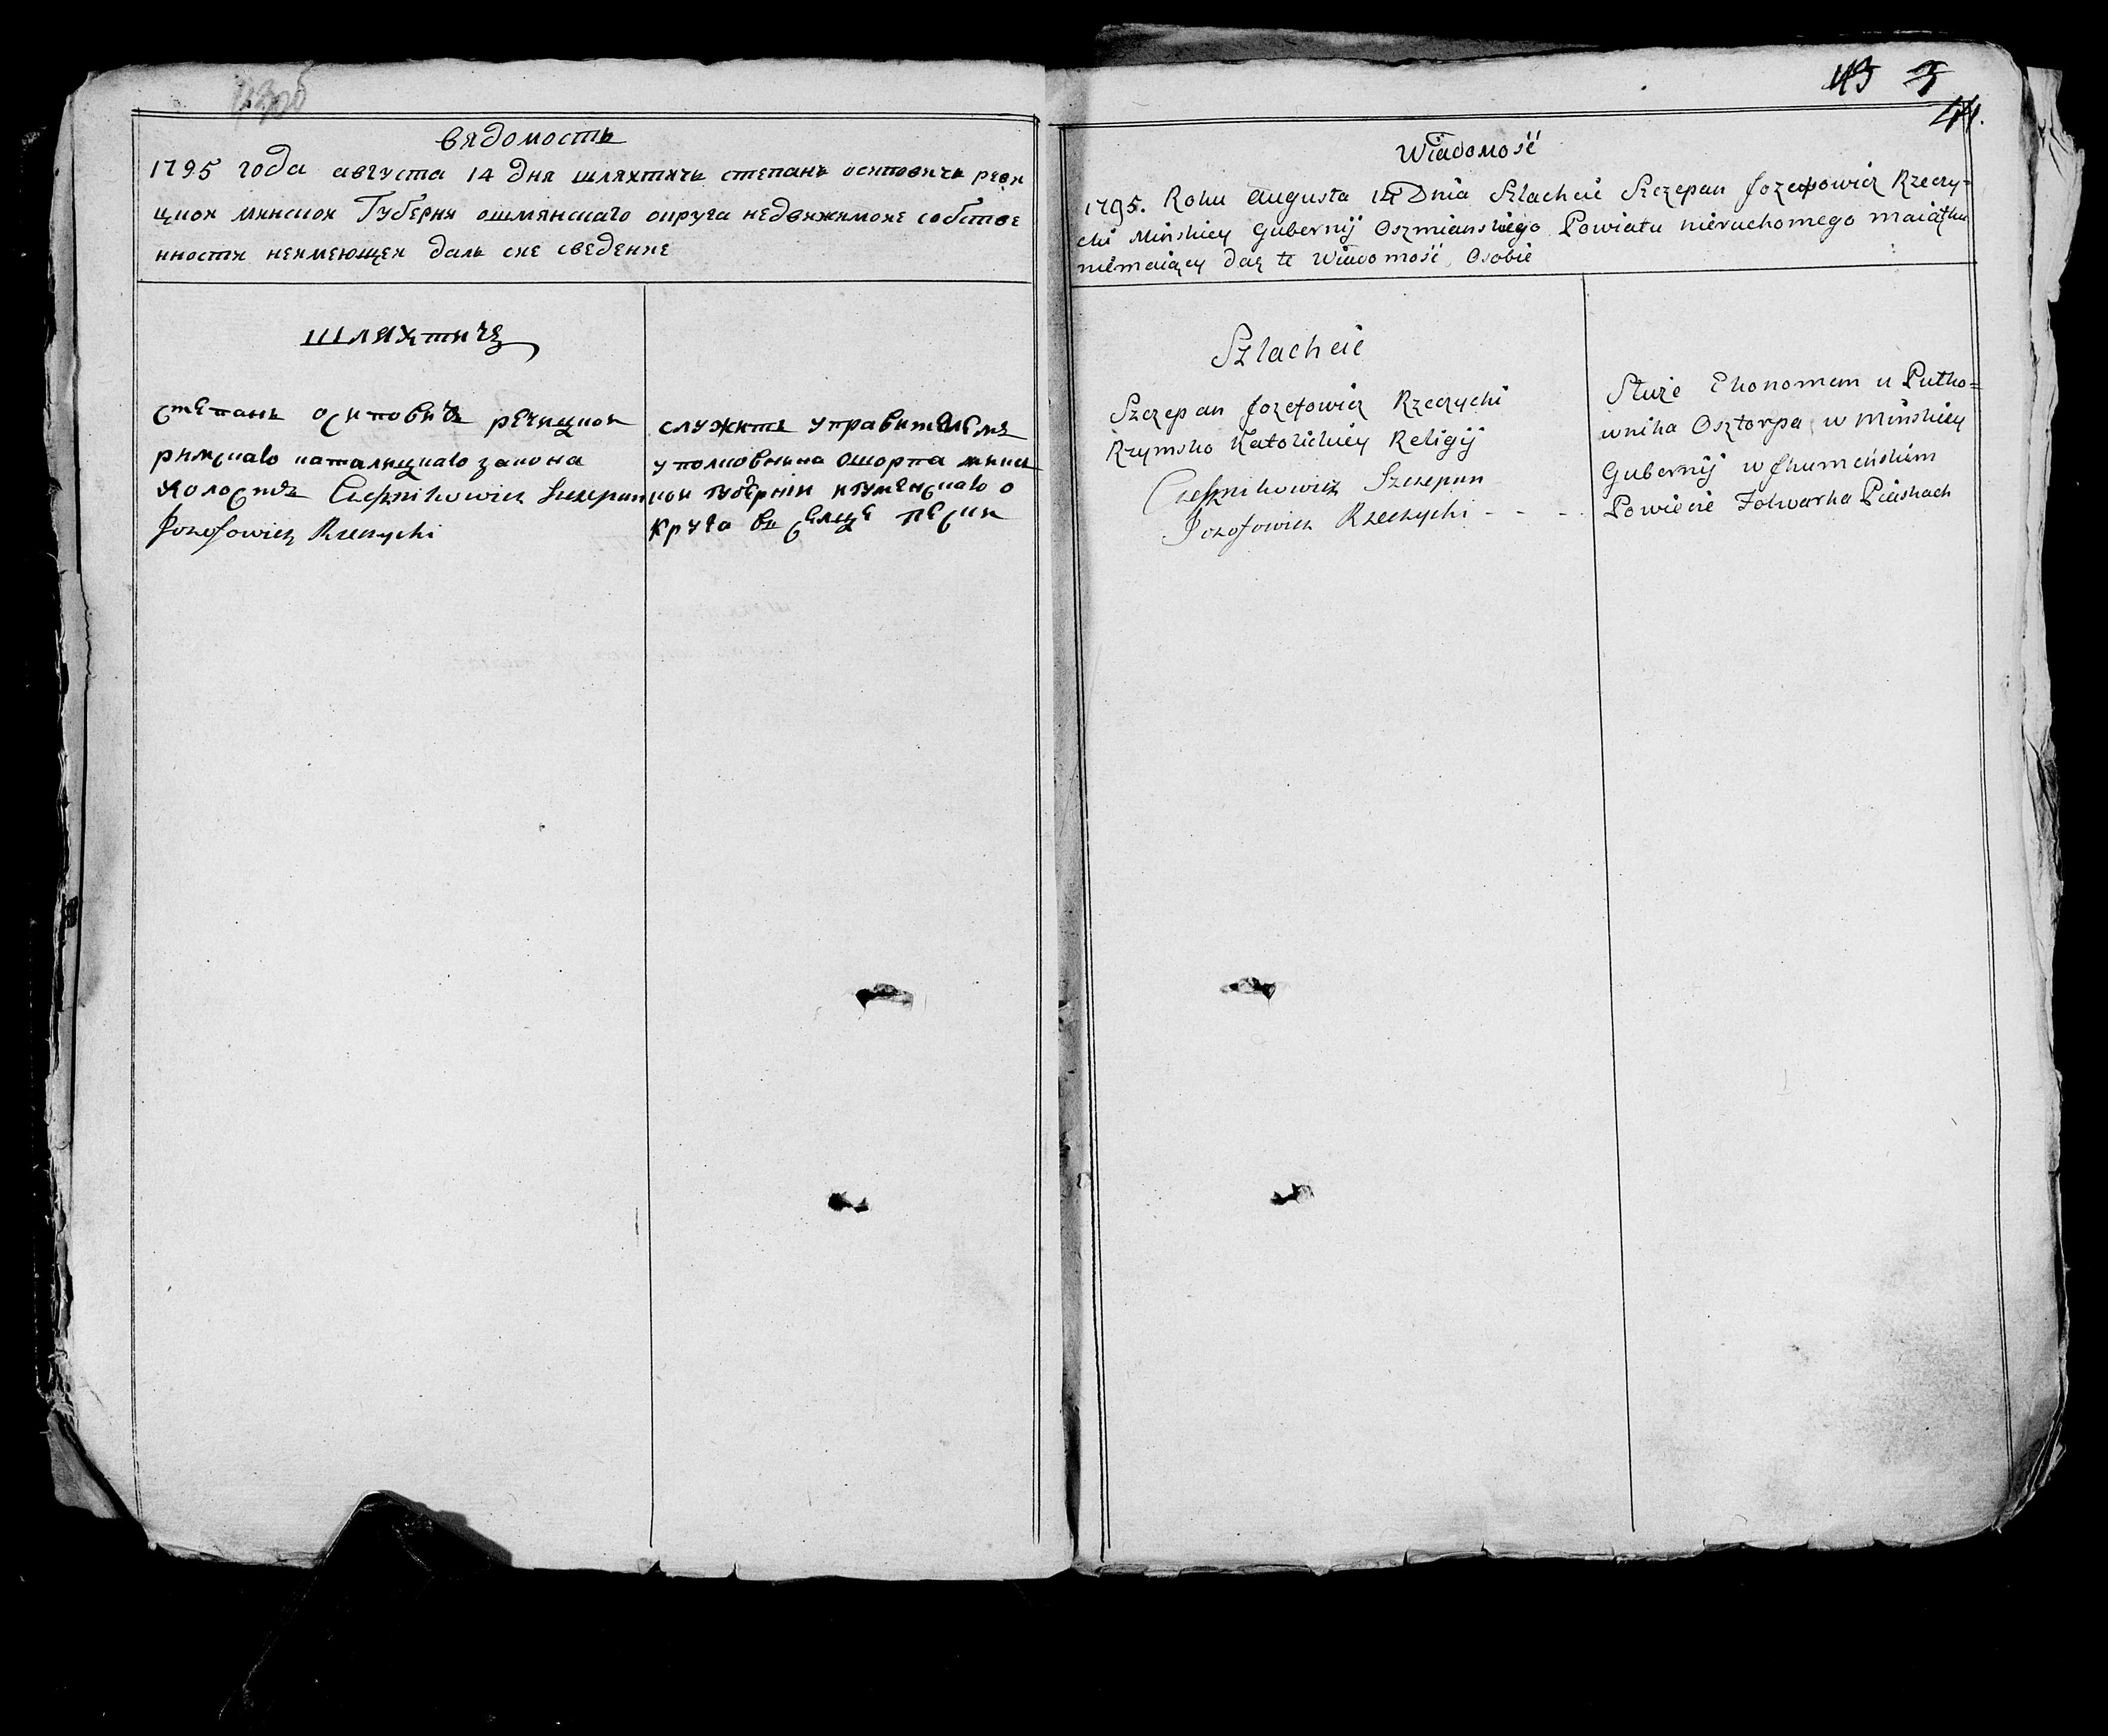 43об
вядомость
1795 года августа 14 дня шляхтичь степань осиповичь речи
цкои минскои Губерня ошмянскаго округа недвижимоие собстве
нности неимеющеи даль сие сведение
шляхтичъ
степань осиповичь речицкои
римскаго каталицкаго закона
холостъ Szczepan
Jozofowicz Rzeczycki
служить управителемъ
у полковника Ошорпа минс
кои губернiи игуменскаго о
круга въ селце пески
43 3
44.
Wiadomość
1795. Roku augusta 14 Dnia Szlachcic Szczepan Jozefowicz Rzeczy=
cki Mińskiey Gubernij Oszmianskiego Powiatu nieruchomego maiątku
niemaiący daię te Wiadomość Osobie
Szlachcic
Szczepan Jozefowicz Rzeczycki
Rzymsko Katolickiey Religij
Szczepan
Jozofowicz Rzeczycki - - -
Służe Ekonomem u Putko=
wnika Osztorpa w Mińskiey
Gubernij w Jhumeńskim
Powiecie Folwarka Piaskach